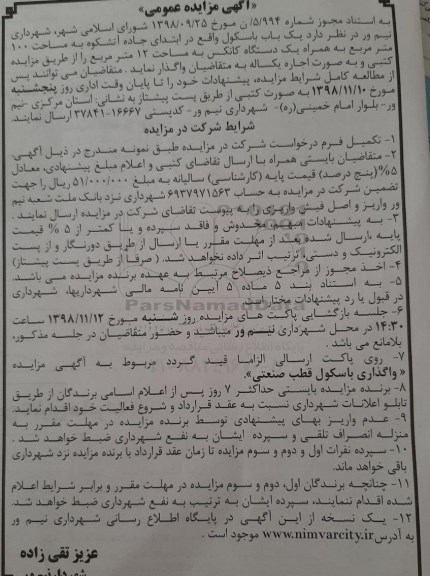 «آگهی مزایده عمومی»
به استناد مجوز شماره ۵/۹۹۴/ن مورخ ۱۳۹۸/۰۹/۲۵ شورای اسلامی شهر، شهرداری
نیم ور در نظر دارد یک باب باسکول واقع در ابتدای جاده آتشکوه به مساحت ۱۰۰
متر مربع به همراه یک دستگاه کانکس به مساحت ۱۲ متر مربع را از طریق مزایده
کتبی و به صورت اجاره یکساله به متقاضیان واگذار نماید . متقاضیان می توانند پس
از مطالعه کامل شرایط مزایده، پیشنهادات خود را تا پایان وقت اداری روز پنجشنبه
مورخ ۱۳۹۸/۱۱/۱۰ به صورت کتبی از طریق پست پیشتاز به نشانی: استان مرکزی -نیم
ور- بلوار امام خمینی(ره)- شهرداری نیم ور- کدپستی ۱۶۶۶۷-۳۷۸۴۱ ارسال نمایند.
شرایط شرکت در مزایده
۱- تکمیل فرم درخواست شرکت در مزایده طبق نمونه مندرج در ذیل آگهی.
۲- متقاضیان بایستی همراه با ارسال تقاضای کتبی و اعلام مبلغ پیشنهادی، معادل
۵%(پنج درصد) قیمت پایه (کارشناسی) سالیانه به مبلغ ۵۱/۰۰۰/۰۰۰ ریال را جهت
تضمین شرکت در مزایده به حساب ۶۹۳۷۹۷۱۵۶۳ شهرداری نزد بانک ملت شعبه نیم
ور واریز و اصل فیش واریزی را به پیوست تقاضای شرکت در مزایده ارسال نمایند .
۳- به پیشنهادات مبهم، مخدوش و فاقد سپرده و یا کمتر از ۵ % قیمت
پایه ،ارسال شده بعد از مهلت مقرر یا ارسال از طریق دورنگار و از پست
الکترونیک و دستی، ترتیب اثر داده نخواهد شد. ( صرفا از طریق پست پیشتاز)
۴- اخذ مجوز از مراجع ذیصلاح مرتبط به عهده برنده مزایده می باشد.
۵- به استناد بند ۵ ماده ۵ آیین نامه مالی شهرداریها، شهرداری
در قبول یا رد پیشنهادات مختار است.
۶- جلسه بازگشایی پاکت های مزایده روز شنبه مورخ ۱۳۹۸/۱۱/۱۲ ساعت
۱۴:۳۰ در محل شهرداری نیم ور میباشد و حضور متقاضیان در جلسه مذکور،
بلامانع می باشد .
۷- روی پاکت ارسالی الزاما قید گردد مربوط به آگهی مزایده
« واگذاری باسکول قطب صنعتی».
۸- برنده مزایده بایستی حداکثر ۷ روز پس از اعلام اسامی برندگان از طریق
تابلو اعلانات شهرداری نسبت به عقد قرارداد و شروع فعالیت خود اقدام نماید.
۹- عدم واریز بهای پیشنهادی توسط برنده مزایده در مهلت مقرر به
منزله انصراف تلقی و سپرده ایشان به نفع شهرداری ضبط خواهد شد .
۱۰- سپرده نفرات اول و دوم و سوم مزایده تا زمان عقد قرارداد با برنده مزایده نزد شهرداری
باقی خواهد ماند.
۱۱- چنانچه برندگان اول، دوم و سوم مزایده در مهلت مقرر و برابر شرایط اعلام
شده اقدام ننمایند، سپرده ایشان به ترتیب به نفع شهرداری ضبط خواهد شد.
۱۲- یک نسخه از این آگهی در پایگاه اطلاع رسانی شهرداری نیم ور
به آدرس www.nimvarcity.ir موجود است .
عزیز تقی زاده
شهردار نیم ور
ParsNamadData